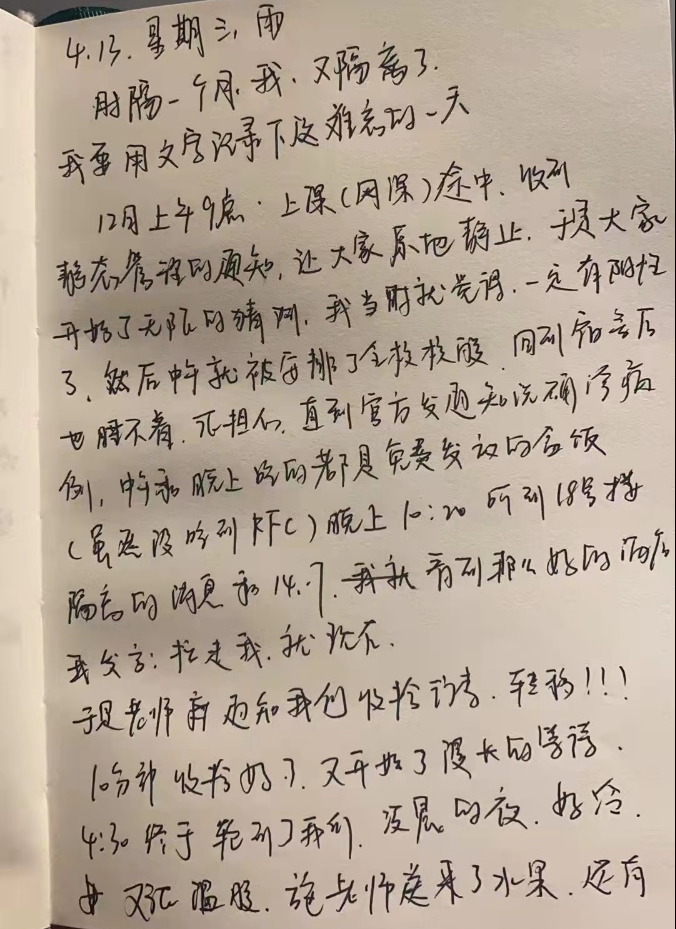 4.13. 星期三, 雨
时隔一个月, 我, 又隔离了.
我要用文字记录下这难忘的一天
12日上午9点. 上课(网课)途中, 收到
静态管理的通知, 让大家原地静止, 于是大家
开始了无限的猜测, 我当时就觉得, 一定有阳性
了, 然后中午就被安排了全校核酸, 回到宿舍后
也睡不着, 不担心, 直到官方发通知说确诊病
例, 中午和晚上吃的都是免费发放的盒饭
(虽然没吃到KFC) 晚上10:20 听到18号楼
隔离的消息和14.7. 我就看到那么好的酒店
我发言: 拉走我, 就现在.
于是老师就通知我们收拾行李, 转移!!!
10分钟收拾好了, 又开始了漫长的等待.
4:30 终于轮到了我们, 凌晨的夜, 好冷,
又 老师送来了水果, 还有